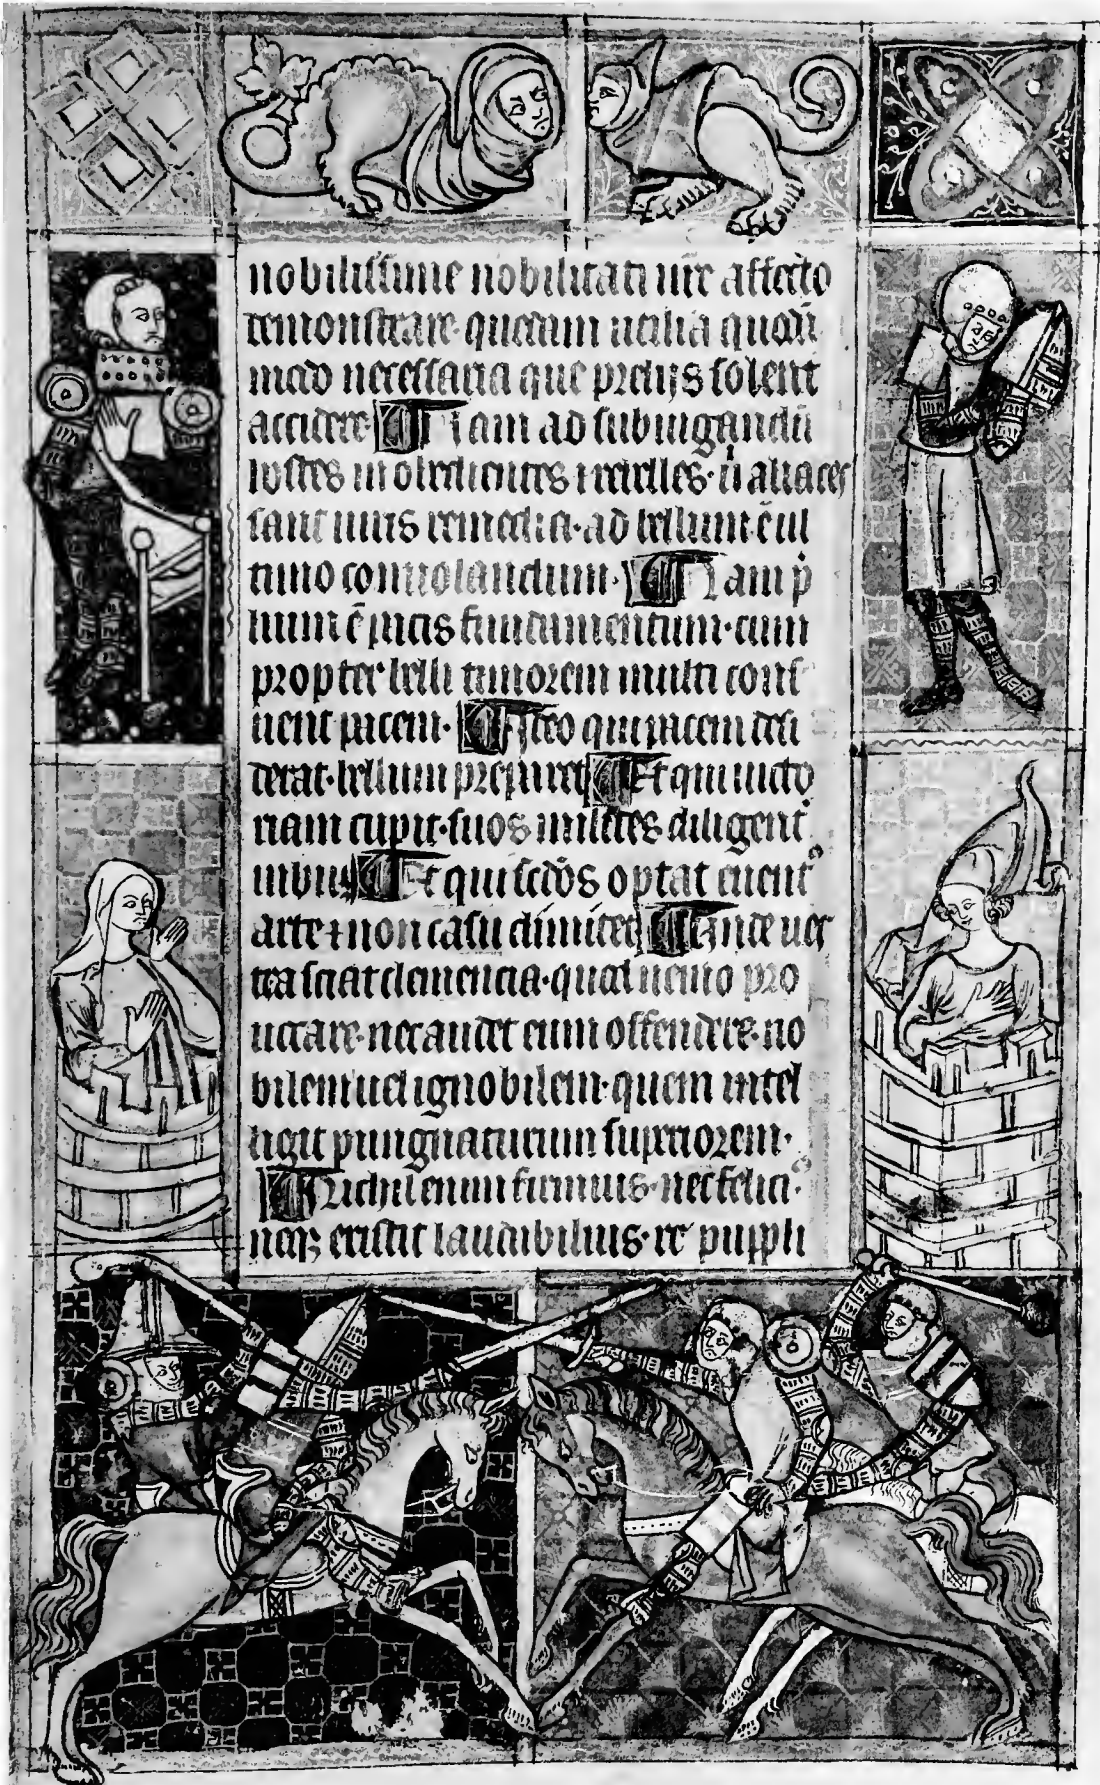 nobilissime nobilitati vr̄e affecto
demonstrare· quedam utilia quodā
modo necessaria que prelijs solent
accidere Nam ad subiugandū
hostes inobedientes ⁊ rebelles·
sunt remedia· ad bellum ē ul
timo convolandum· Nam p
lium ē pacis fundamentum· cum
propter belli timorem multi conf
pacem· Ideo qui pacem desi
derat· bellum preparet Et qui victo
riam cupit· suos milites diligent͛
imbuat Et qui sc̄dōs optat euent͛
arte ⁊ non casu dimicet Unde ves
tra sciat clemencia· quod nemo pro
uocare· nec audet eum offendere· no
bilem uel ignobilem· quem intel
ligit pungnaturum superiorem·
Nichil enim firmius· nec felici͛
neqꝫ existit laudibilius· re puppli